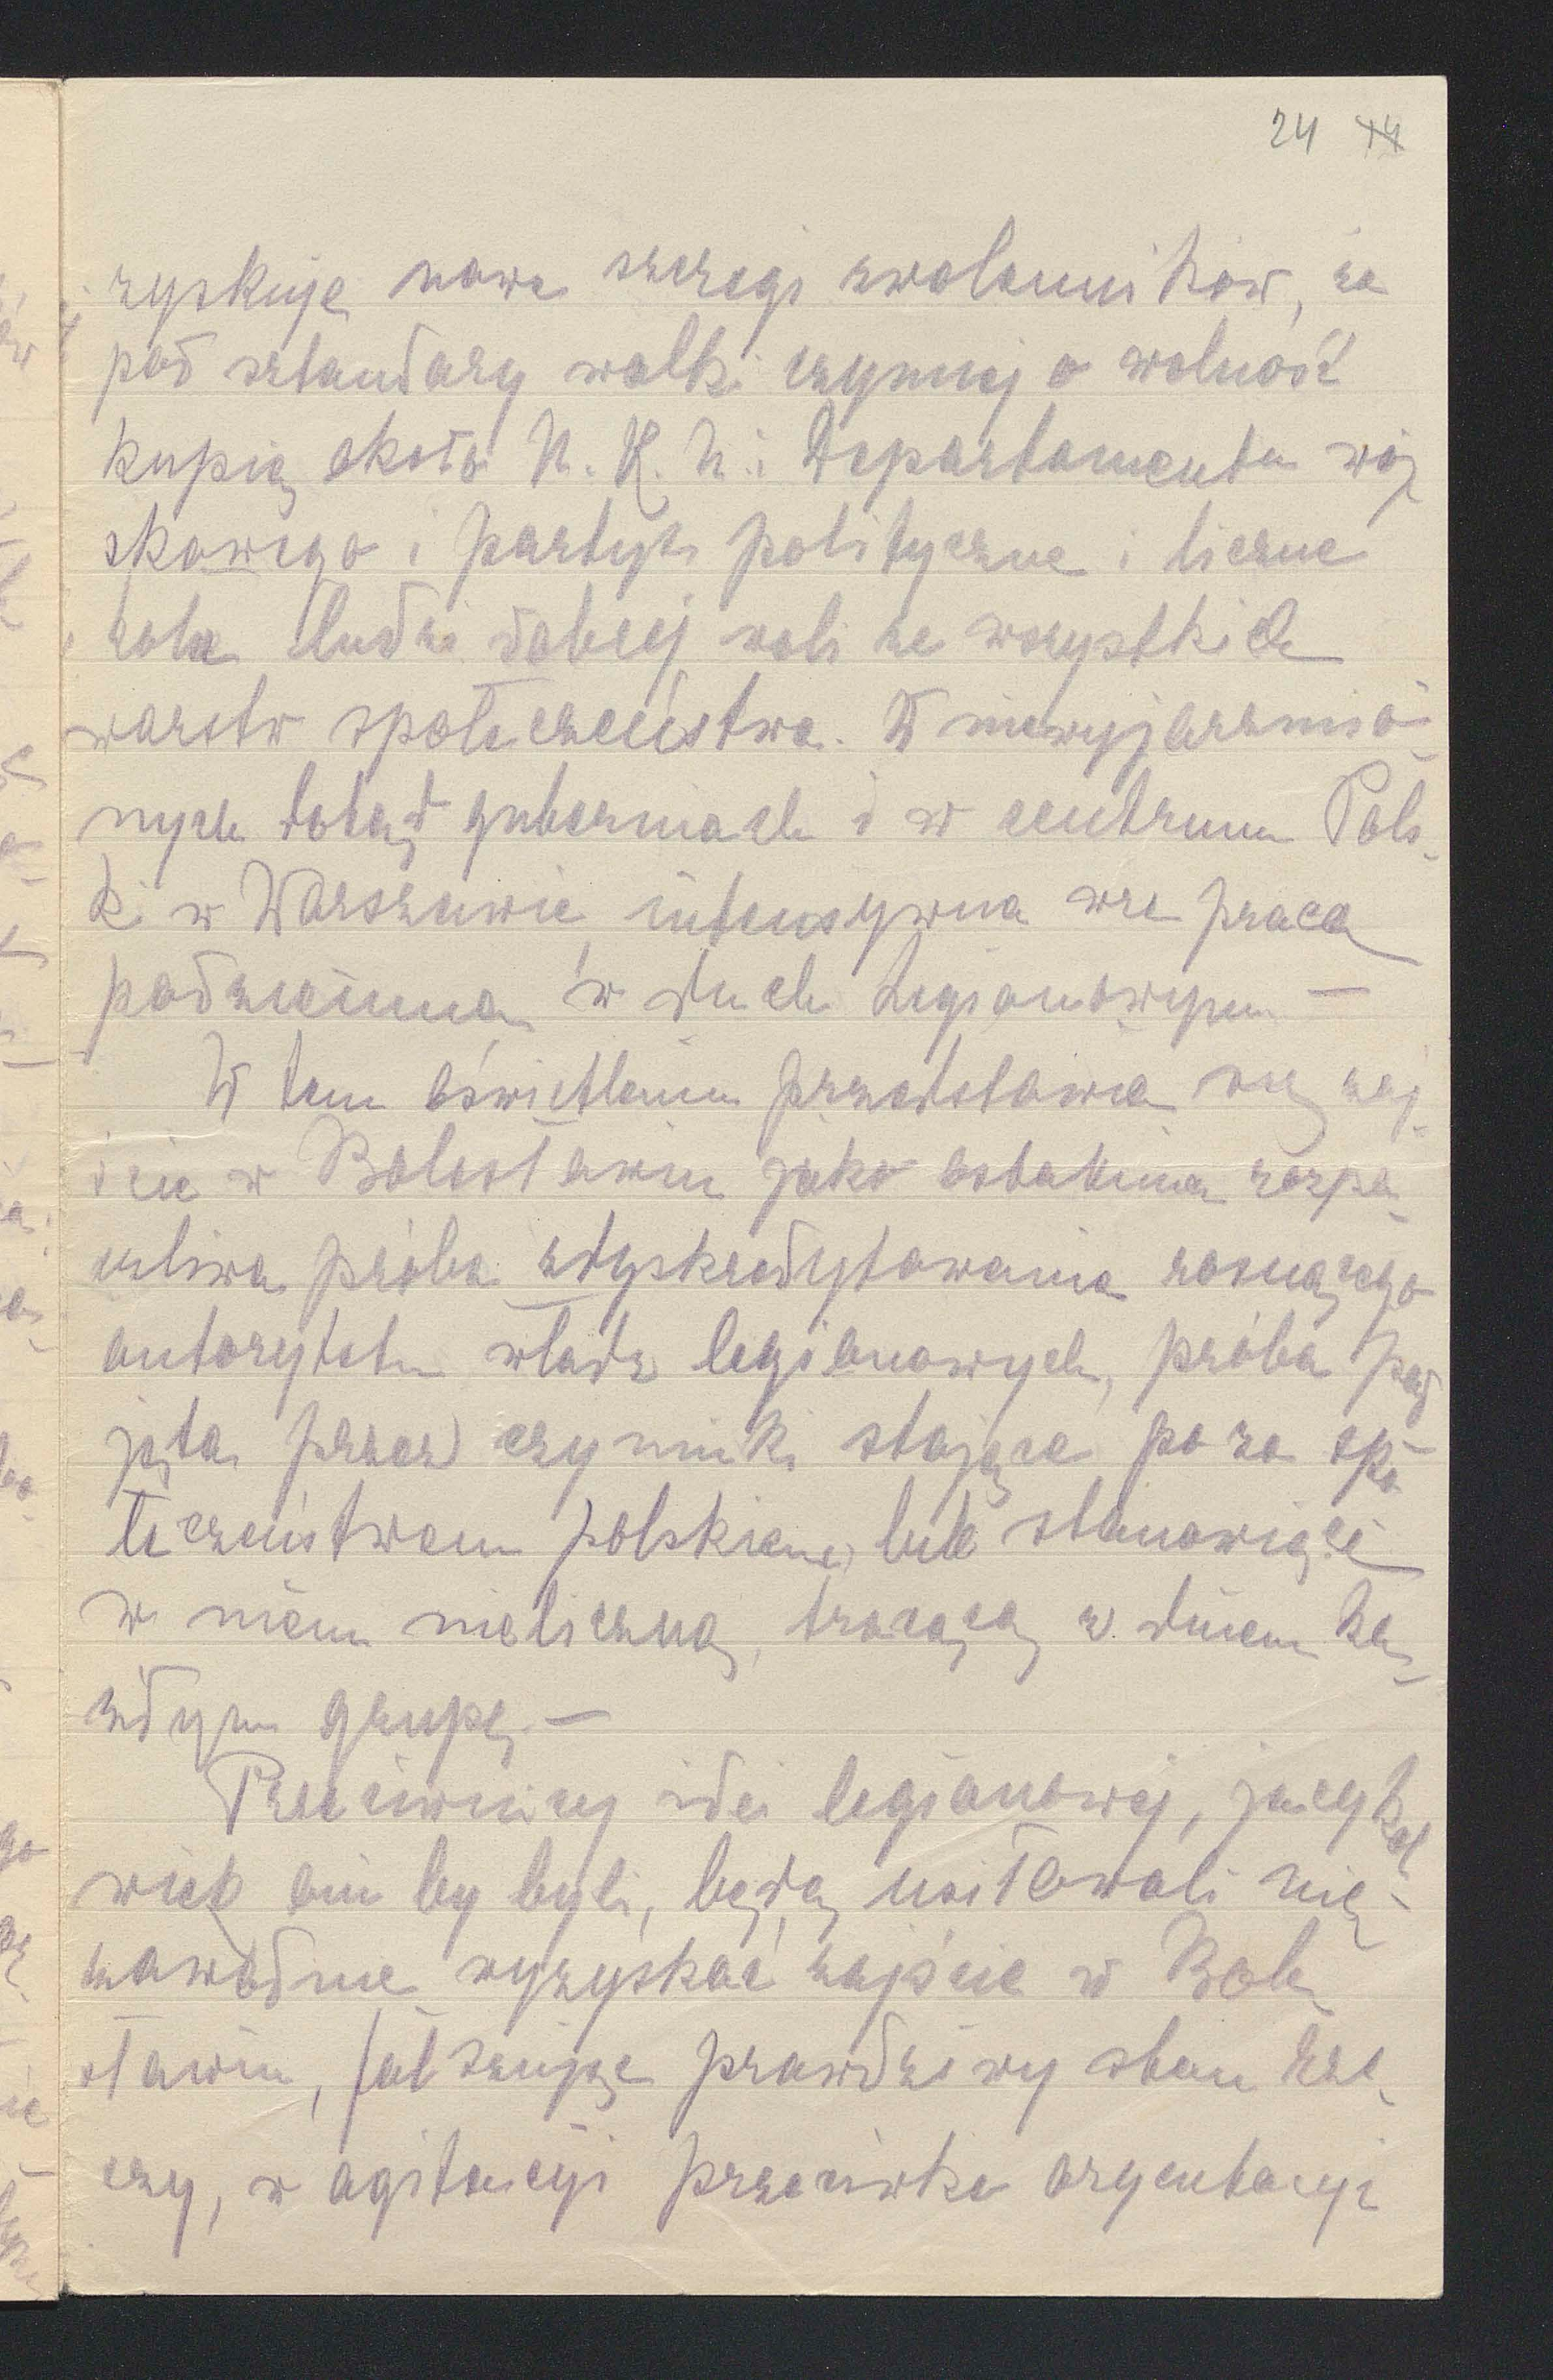 24 14
zyskuje nowe szeregi zwolenników, że
pod sztandary walki czynnej o wolność
kupią około N. K. N. i Departamentu woj
skowego i partye polityczne i liczne
koła ludzi dobrej woli ze wszystkich
warstw społeczeństwa. W niewyjarzmio-
nych dotąd guberniach i w centrum Pols-
ki w Warszawie intensywna wre praca
podziemna w duchu Legionowym —
W tem oświetleniu przedstawia się zaj-
ście w Bolesławiu jako ostatnia rozpa-
czliwa próba zdyskredytowania rosnącego
autorytetu władz legionowych, próba pod
jęta przez czynniki stojące poza spo-
łeczeństwem polskiem, lub stanowiące
w niem nieliczną, tracącą z dniem ka-
żdym grupę. —
Przeciwnicy idei legionowej, jacykol
wiek oni by byli, będą usiłowali nie-
zawodnie wyzyskać zajście w Bole-
sławiu, fałszując prawdziwy stan rze-
czy, w agitacyi przeciwko oryentacyi